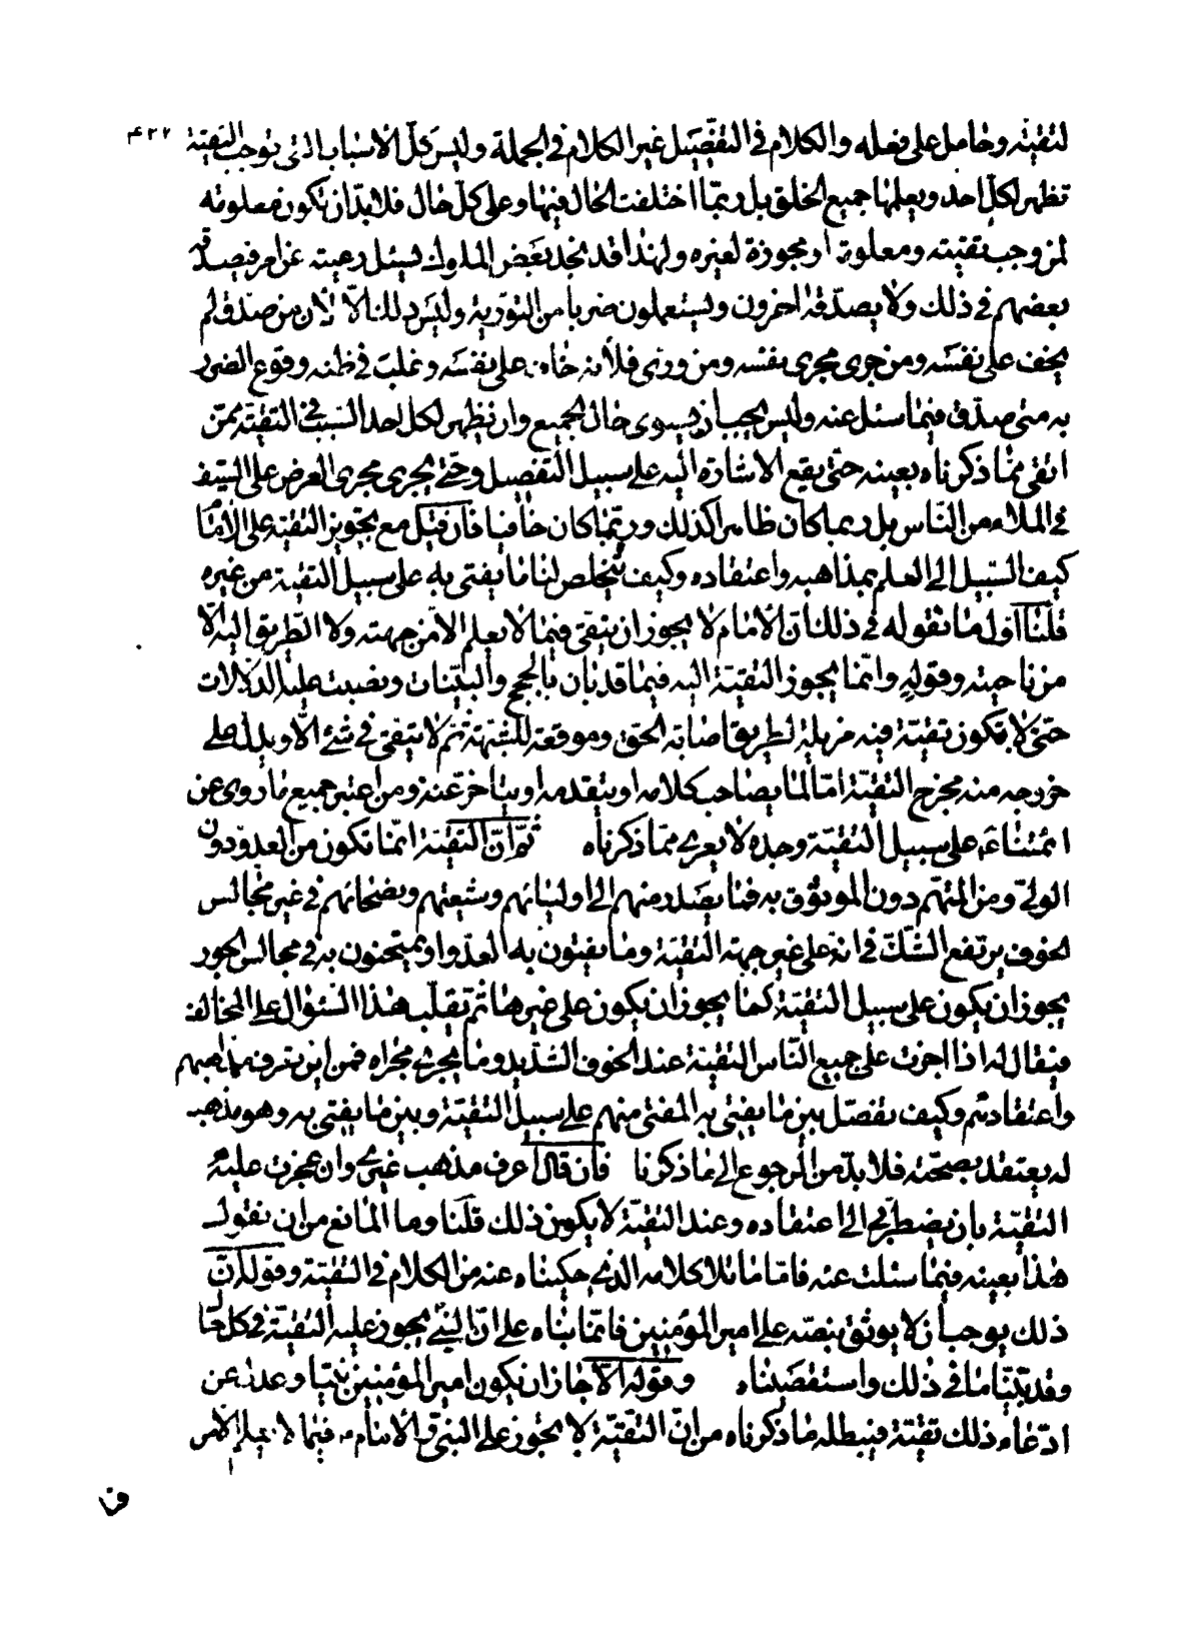 لتقيته وحامل على فعله والكلام في التفصيل غير الكلام في الجملة وليس كل الاسباب التي توجب التقية ٤٢٧
تظهر لكل احد ويعلمها جميع الخلق بل ربما اختلفت الحال فيها وعلى كل حال فلا بد ان تكون معلومه
لمن وجب تقيته ومعلومة او مجوزة لغيره ولهذا قد نجد بعض الملوك يسئل رعيته عن امر فيصدقه
بعضهم في ذلك ولا يصدقه اخرون ويستعملون ضربا من التورية وليس ذلك الا لان من صدق لم
يخف على نفسه ومن جرى مجرى نفسه ومن ورى فلانه خاف على نفسه وغلب في ظنه وقوع الضرر
به متى صدق فيما سئل عنه وليس يجب ان يستوى حال الجميع وان يظهر لكل احد السبب في التقية ممن
اتقى مما ذكرناه بعينه حتى يقع الاشارة اليه على سبيل التفصيل وحتى يجرى مجرى العرض على السيف
في الملاء من الناس بل ربما كان ظاهرا كذلك وربما كان خافيا فان قيل مع تجويز التقية على الامام
كيف السبيل الى العلم بمذاهبه واعتقاده وكيف يتخلص لنا ما يفتى به على سبيل التقية من غيره
قلنا اول ما نقوله في ذلك ان الامام لا يجوز ان يتقى فيما لا يعلم الا من جهته ولا الطريق اليه الا
من ناحيته وقوله وانما يجوز التقية اليه فيما قد بان بالحجج والبينات ونصبت عليه الدلالات
حتى لا تكون تقية فيه مزيلة لطريق اصابة الحق وموقعة للشبهة ثم لا يتقى في شئ الا ويدل على
خروجه منه مخرج التقية اما لما يصاحب كلامه او يتقدمه او يتاخر عنه ومن اعتبر جميع ما روى عن
ائمتنا ع على سبيل التقية وجده لا يعرى مما ذكرناه ثم ان التقية انما تكون من العدو دون
الولى ومن المتهم دون الموثوق به فما يصدر منهم الى اوليائهم وشيعتهم ونصحائهم في غير مجالس
الخوف يرتفع الشك في انه على غير جهة التقية وما يفتون به العدو او يمتحنون به في مجالس الجور
يجوز ان يكون على سبيل التقية كما يجوز ان يكون على غيرها ثم تقلب هذا السئوال على المخالف
فيقال له اذا اجزت على جميع الناس التقية عند الخوف الشديد وما يجرى مجراه فمن اين تعرف مذاهبهم
واعتقادهم وكيف تفصل بين ما يفتى به المفتى منهم على سبيل التقية وبين ما يفتى به وهو مذهب
له يعتقد بصحته فلا بد من الرجوع الى ما ذكرنا فان قال اعرف مذهب غيرى وان جوزت عليه
التقية بان يضطرنى الى اعتقاده وعند التقية لا يكون ذلك قلنا وما المانع من ان نقول
هذا بعينه فيما سئلت عنه فاما ما تلا كلامه الذى حكيناه عنه من الكلام في التقية وقوله ان
ذلك يوجب ان لا يوثق بنصه على امير المؤمنين فانما بناه على ان النبى يجوز عليه التقية في كل حال
وقد بينا ما في ذلك واستقصيناه وقوله الا جاز ان يكون امير المؤمنين نبيا وعدل عن
ادعاء ذلك تقية فيبطله ما ذكرناه من ان التقية لا يجوز على النبى والامام فيما لا يعلم الا من